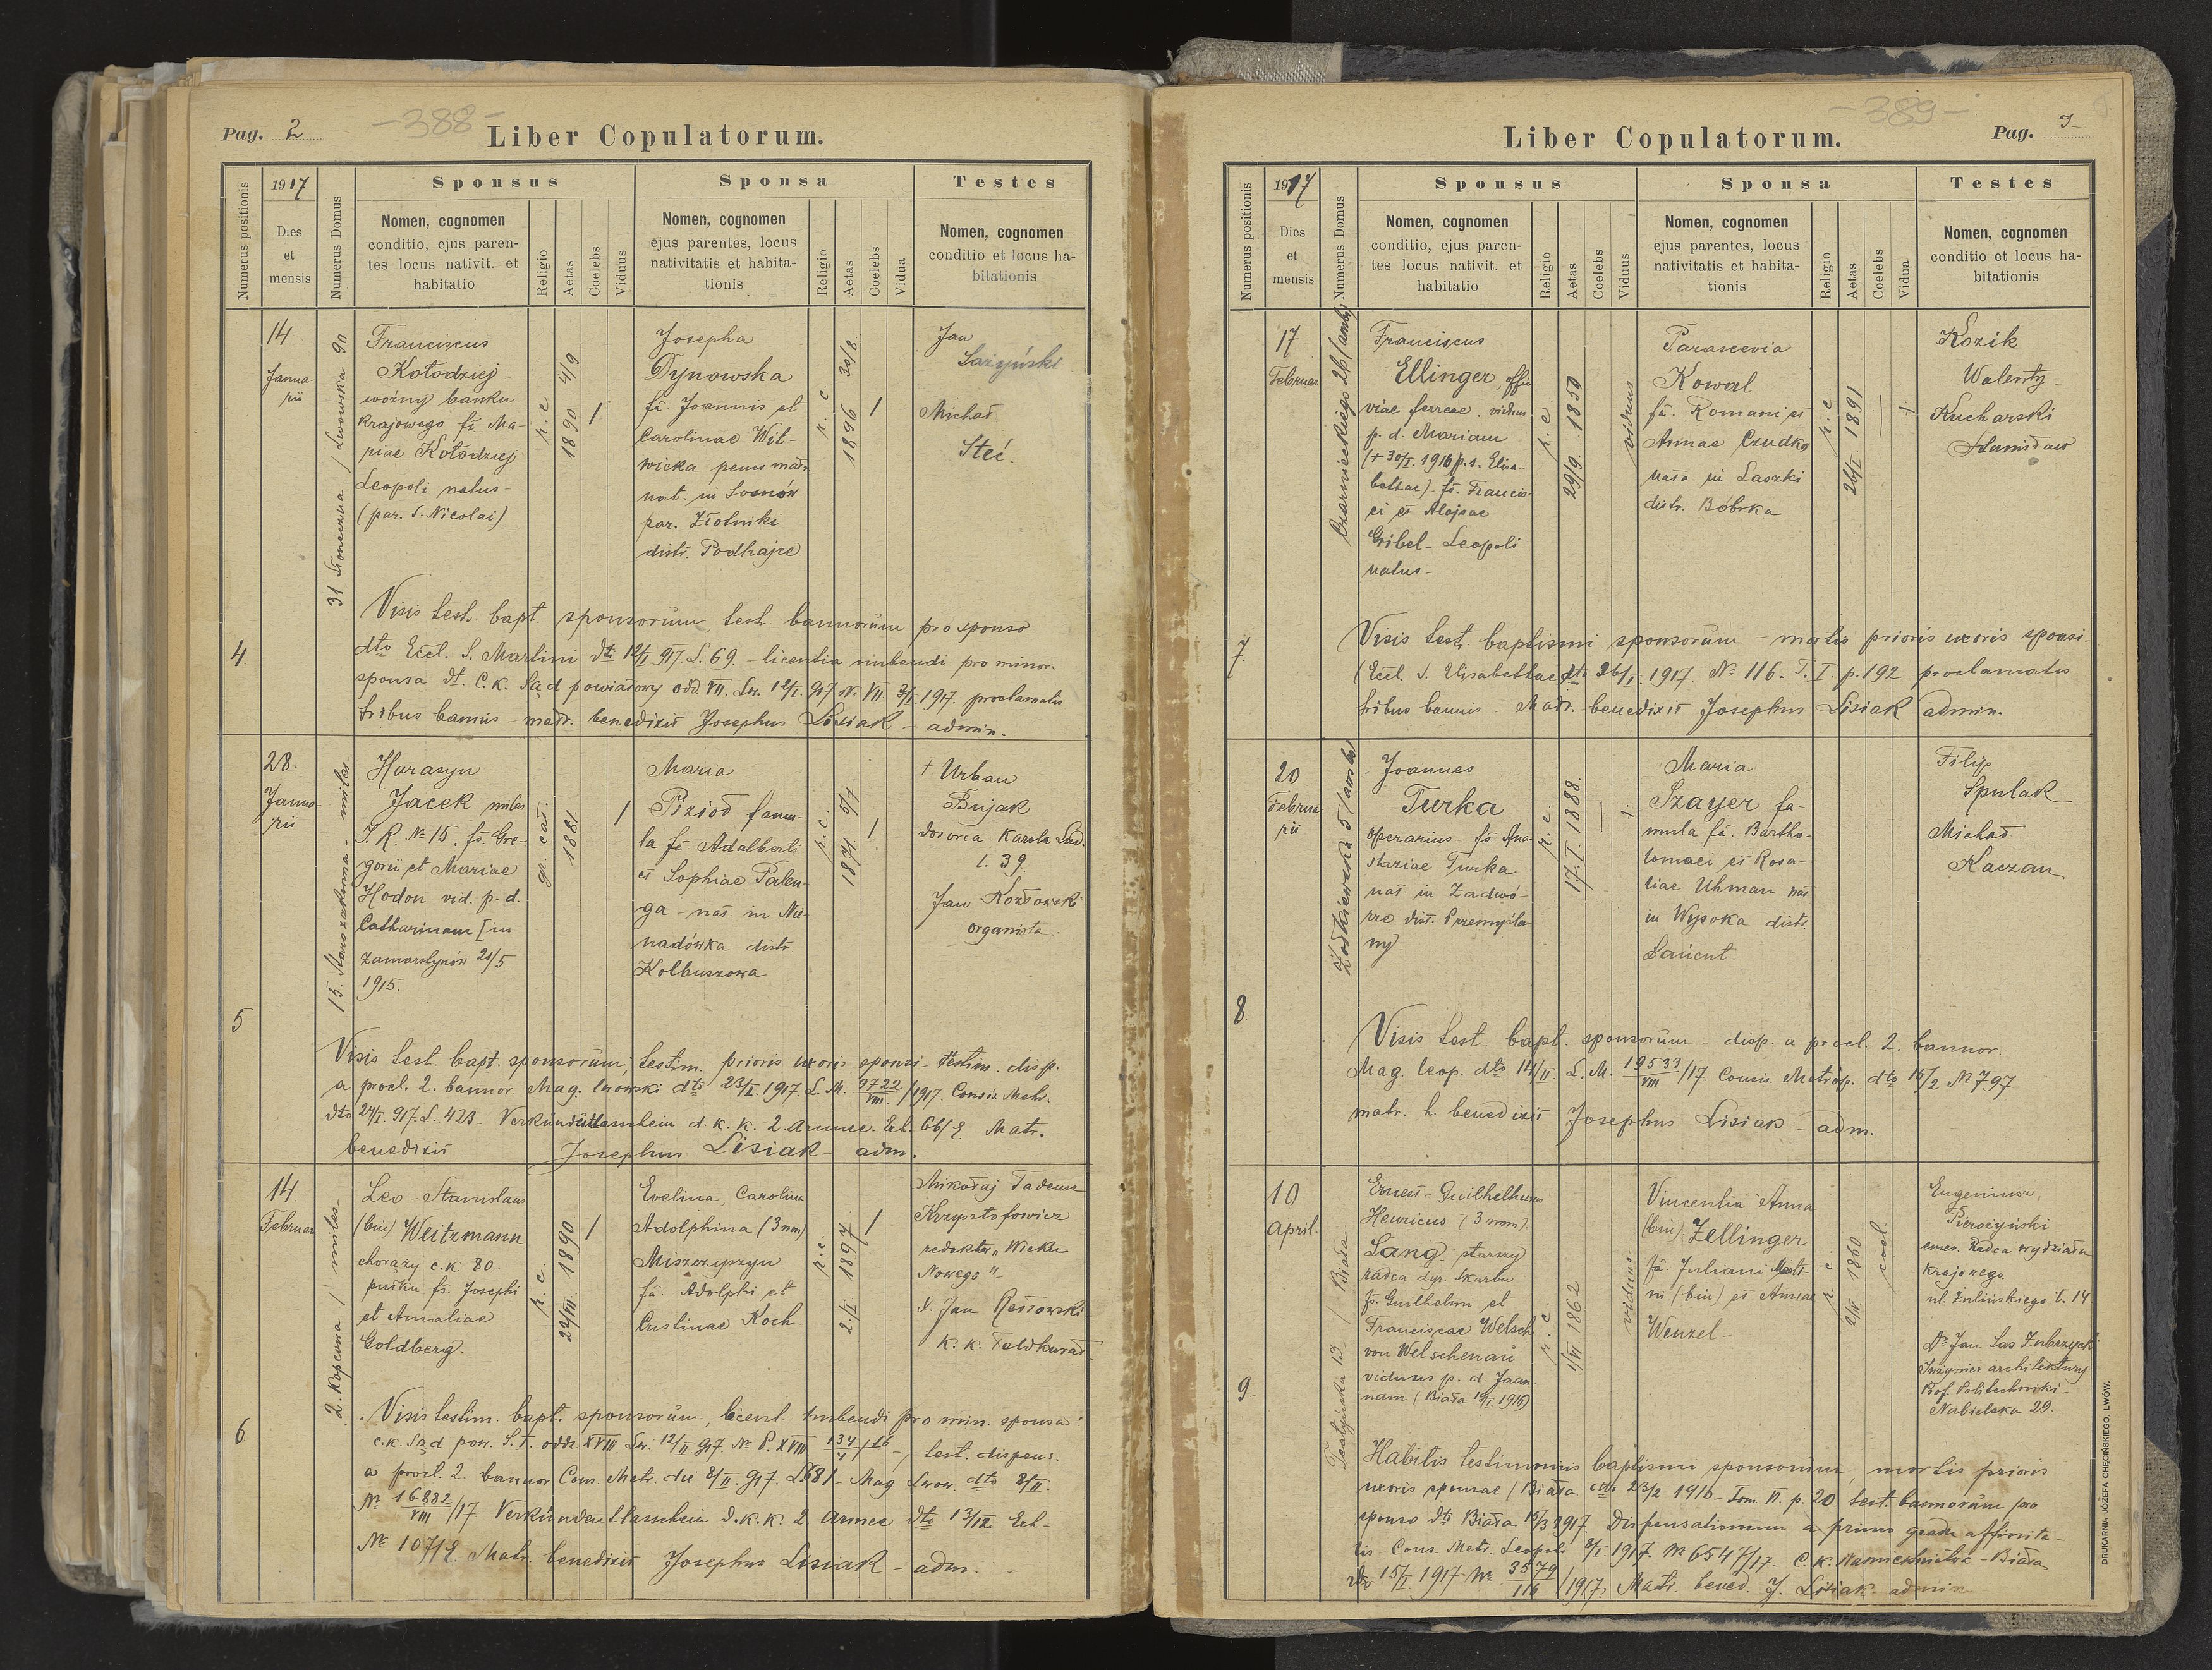 Pag. 2
-388-
Liber Copulatorum.
Numerus positionis
1917
Dies
et
mensis
Numerus Domus
Sponsus
Nomen, cognomen
conditio, ejus paren-
tes locus nativit. et
habitatio
Religio
Aetas
Coelebs
Viduus
Sponsa
Nomen, cognomen
ejus parentes, locus
nativitatis et habita-
tionis
Religio
Aetas
Coelebs
Vidua
Testes
Nomen, cognomen
conditio et locus ha-
bitationis
4
14
Janua-
rii
31 Słoneczna / Lwowska 90
Franciscus
Kołodziej
woźny banku
krajowego fs. Ma-
riae Kołodziej
Leopoli natus-
(par. S. Nicolai)
r. c.
1890 4/9
/
Josepha
Dynowska
fa. Joannis et
Carolinae Wit-
wicka
nat. in Sosnów
par. Złotniki
distr. Podhajce
r. c.
1896 30/8.
/
Jan
Michał
Steć.
Visis test. bapt sponsorum, test. bannorum pro sponso
dto Eccl. S. Martini dti 12/I 917 L. 69 - licentia nubendi pro minor.
sponsa dt. C. K. Sąd powiatowy odd. VII. Lw. 12/I. 917 Nr. VII. 3/I 1917. proclamatis
tribus bannis - matr. benedixit Josephus Lisiak - admin.
5
28.
Janua-
rii
15. Starozakonna - miles.
Harasyn
Jacek miles
I. R. № 15. fs. Gre-
gorii et Mariae
Hodon vid. p. d.
Catharinam [in
Zamarstynów 21/5
1915.
gr. cat.
1881
/
Maria
Pizioł famu-
la fa. Adalberti
et Sophiae Palen-
ga - nat. in
distr.
Kolbuszowa
r. c.
1871 5/7
/
+ Urban
Bujak
dozorca Karola Lud.
l. 39.
Jan Kozłowski
organista.
Visis test. bapt. sponsorum, testim. prioris uxoris sponsi - testim. disp.
a procl. 2. bannor. Mag. lwowski dto 23/I. 1917. L. M. 9722/VIII. /1917. Consis. Metr.
dto 24/I. 917. L. 423 - Verkündentlassschein d. k. k. 2. Armee. Ech. 66/E. Matr.
benedixit Josephus Lisiak - adm.
6
14.
Februar.
2. Kopcowa / miles -
Leo - Stanislaus
(bin) Weitzmann
chorąży c.k. 80.
pułku fs. Josephi
et Amaliae
Goldberg.
r. c.
22/VII. 1890
/
Evelina, Carolina
Adolphina (3 nom)
Miszczyszyn
fa. Adolphi et
Cristinae Koch-
r. c.
2/I. 1897
/
Mikołaj Tadeusz
Krzysztofowicz
redaktor „Wieku
Nowego"
X. Jan
K. K. Feldkurat
Visis testim. bapt. sponsorum, licent. nubendi pro min. sponsa:
c. k. Sąd pow. S. I. oddz. XVIII Lw. 12/II 917. № P. XVIII 134/4 /16 -, test. dispens.
a procl. 2. bannor Cons. Metr. dei 8/II. 917. L 681 - Mag Lwow. dto 8/II.
№ 16882/VIII /17. Verkündentlassschein d. k. k. 2. Armee dto 13/II Ech-
№ 107/E. Matr. benedixit Josephus Lisiak - adm. -
-389-
Liber Copulatorum.
Pag. 3-
Numerus positionis
1917
Dies
et
mensis
Numerus Domus
Sponsus
Nomen, cognomen
conditio, ejus paren-
tes locus nativit. et
habitatio
Religio
Aetas
Coelebs
Viduus
Sponsa
Nomen, cognomen
ejus parentes, locus
nativitatis et habita-
tionis
Religio
Aetas
Coelebs
Vidua
Testes
Nomen, cognomen
conditio et locus ha-
bitationis
7
17
Februar.
Czarnieckiego 26
Franciscus
Ellinger, offic.
viae ferreae. viduus
p. d. Mariam
(+ 30/I. 1916 p. s. Elisa-
bethae) fs. Francis-
ci et Aloisae
Gribel - Leopoli
natus -
r. c.
29/9. 1850
viduus
Parascevia
Kowal
fa. Romani et
Annae Czudko
nata in Laszki
distr. Bóbrka
r. c.
26/I. 1891
Kozik
Walenty
Kucharski
Stanisław
Visis test. baptismi sponsorum - mortis prioris uxoris sponsi -
(Eccl. S. Elisabethae dto 26/I. 1917. № 116. T. I. p. 192 proclamatis
tribus bannis - Matr. benedixit Josephus Lisiak admin.
8
20
Februa-
rii
Żółkiewska 5
Joannes
Turka
operarius fs. Ana-
staziae Turka
nat. in Zadwó-
rze dist. Przemyśla-
ny.
r. c.
17. I. 1888.
Maria
Szayer fa-
mula fa. Bartho-
lomaei et Rosa-
liae Uhman nat
in Wysoka distr.
Łańcut
Filip
Spulak
Michał
Kaczan
Visis test. bapt. sponsorum - disp. a procl. 2. bannor.
Mag. leop. dto 14/II L. M. 19533/VIII /17. Consis. Metrop. dto 16/2 № 797
matr. h. benedixit Josephus Lisiak - adm.
9
10
April.
Teatyńska 13 / Biała.
Ernest - Guilhelmus
Henricus (3 nom).
Lang starszy
radca dyr. Skarbu
fs. Guilhelmi et
Franciscae Welsch
von Welschenau
viduus p. d. Joan-
nam (Biała 19/I. 1916)
r. c.
1/VI. 1862
viduus
Vincentia Anna
(bin) Zellinger
fa. Juliani
(bin) et Annae
Wenzel -
r. c.
1860
coel.
Eugeniusz,
emer. Radca wydziału
krajowego
ul. Żulińskiego l. 14.
Dr Jan Sas Zubrzycki
Inżynier architektury
Prof. Politechniki -
Nabielaka 29.
Habitis testimoniis baptismi sponsorum, mortis prioris
uxoris sponsae (Biała dto 23/2 1916 - Tom. VI. p. 20 test. bannorum pro
sponso dto Biała 15/3 1917. Dispensationem a primo gradu affinita-
tis Cons. Metr. Leopoli 8/I 1917. № 6547/17 - C. K. Namiestnictwa - Biała
dto 15/I. 1917 № 3579/116 /1917. Matr. bened. J. Lisiak admin
DRUKARNIA JÓZEFA CHĘCIŃSKIEGO, LWÓW.